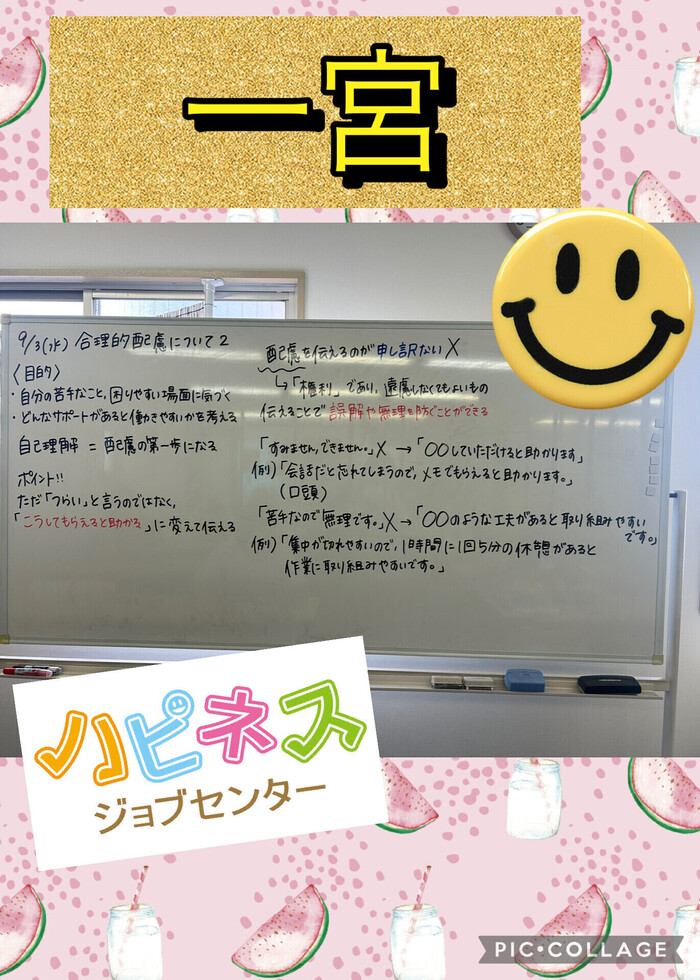 一宮
9/3(水) 合理的配慮について2
〈目的〉
・自分の苦手なこと,困りやすい場面に気づく
・どんなサポートがあると働きやすいかを考える
自己理解 = 配慮の第一歩になる
ポイント!!
ただ「つらい」と言うのではなく,
「こうしてもらえると助かる」に変えて伝える
配慮を伝えるのが申し訳ない X
↳「権利」であり,遠慮しなくてもよいもの
伝えることで誤解や無理を防ぐことができる
「すみません,できません。」X → 「〇〇していただけると助かります」
例)「会話だと忘れてしまうので,メモでもらえると助かります。」
(口頭)
「苦手なので無理です。」X→「〇〇のような工夫があると取り組みやすい
です。」
例)「集中が切れやすいので,1時間に1回5分の休憩があると
作業に取り組みやすいです。」
ハピネス
ジョブセンター
PIC•COLLAGE